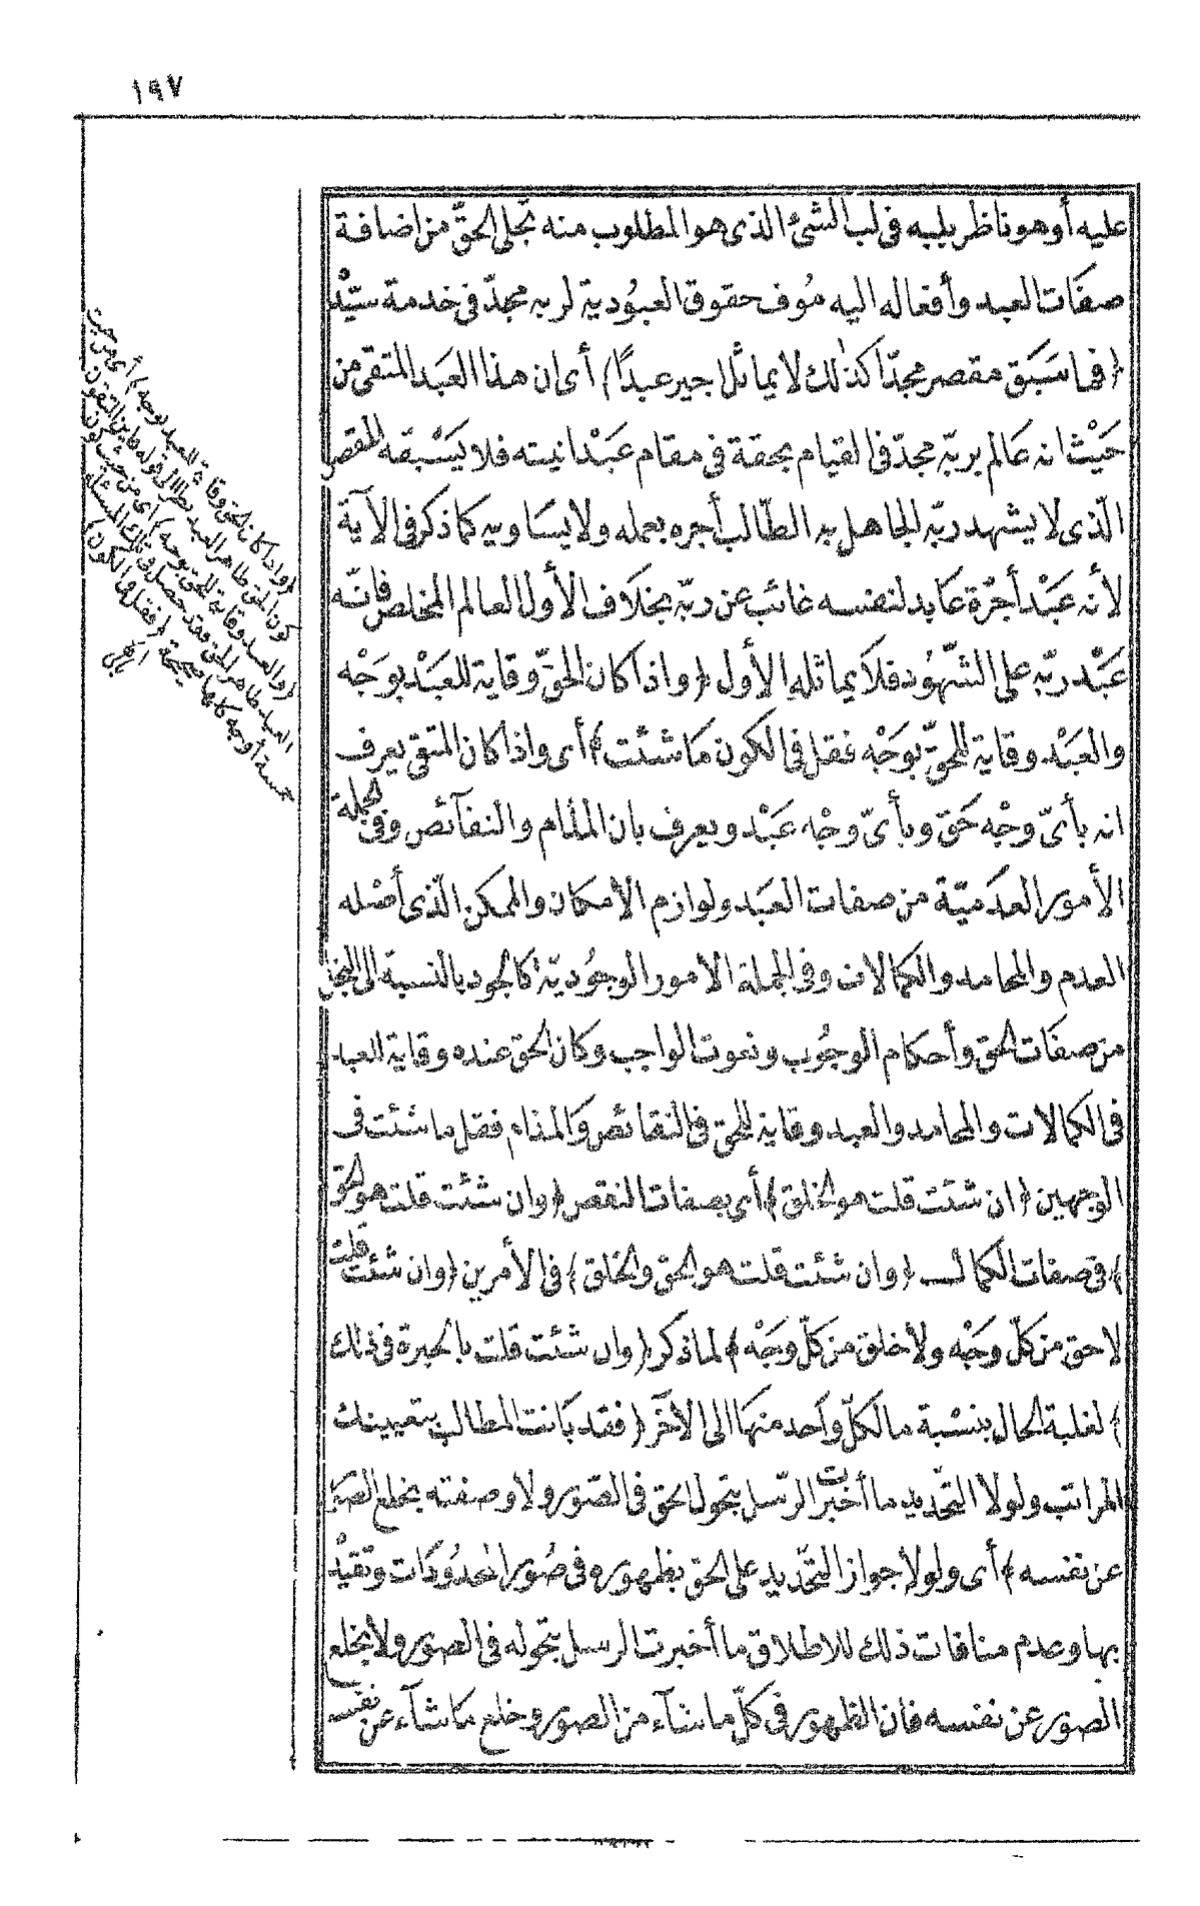 ١٩٧
عليه أو هو ناظر بلبه فى لب الشئ الذى هو المطلوب منه تجلى الحقّ من اضافة
صفات العبد وأفعاله اليه مُوف حقوق العبُودية لربه مجدّ فى خدمة سيّد
﴿فما سَبَق مقصر مجدّا كذٰلك لا يماثل اجير عبدًا﴾ أى ان هذا العَبَد المتقى من
حَيْث انه عَالم بربّه مجدّ فى القيام بحقة فى مقام عَبْدانيته فلا يَسْبقه المقصر
الّذى لا يشهد ربّه الجاهل به الطّالب أجره بعمله ولا يسَاويه كما ذكر فى الآية
لأنه عَبْد أجْرَة عَابد لنفسه غائب عن ربّه بخلاف الأول العالم المخلص فانّه
عَبْد ربّه على الشّهُود فلا يماثله الأول ﴿واذا كان الحَقّ وقاية للعَبْد بوَجْه
والعَبْد وقاية للحقّ بوَجْه فقل فى الكون مَا شئت﴾ أى واذا كان المتقى يعرف
انه بأىّ وجْه حَقّ وبأىّ وجْه عَبْد ويعرف بان المذام والنقآئص وفى الجملة
الأمور العدَميّة من صفات العَبَد ولوازم الامكان والممكن الّذى أصْله
العدم والمحامد والكمالات وفى الجملة الامور الوجُوديّة كالجود بالنسبة الى البخل
من صفَات الحق وأحكام الوجُوب ونعوت الواجب وكان الحق عنده وقاية للعبد
فى الكمالات والمحامد والعبد وقاية للحق فى النقائص وَالمذام فقل ما شئت فى
الوجهين ﴿ان شئت قلت هو الخلق﴾ أى بصفات النقص ﴿وان شئت قلت هو الحق
﴾ فى صفات الكمال ﴿وان شئت قلت هو الحق والخلق﴾ فى الأمرين ﴿وان شئت قلت
لا حق من كلّ وَجْه ولا خلق من كلّ وَجْه﴾ لما ذكر ﴿وان شئت قلت بالحيرة فى ذلك
﴾ لغلبة الحال بنسْبة ما لكلّ وَاحد منهَا الى الآخَر ﴿فقد بَانت المطالب بتعيينك
المراتب ولولا التحّديد ما أخبرت الرّسل بتحول الحق فى الصّور ولا وصفته بخلع الصوَر
عن نفسه﴾ أى ولولا جواز التحّديد على الحق بظهوره فى صُور المحدُودَات وتقيّد
بها وعدم منافات ذلك للاطلاق ما أخبرت الرسل بتحوله فى الصور ولا بخلع
الصور عن نفسه فان الظهور فى كلّ ما شآء من الصور وخلع مَا شآء عن نفسه
﴿واذا كان الحق وقاية للعبد بوجه﴾ أى من حيث
كون الحق ظاهر العبد بطلال قوله فأين المتقون
﴿والعبد وقاية للحق بوجه﴾ أى من حيث كون
العبد ظاهر الحق فقد حصل فى تلك المسئلة
خمسة أوجه كلها صحيحة ﴿فقل فى الكون﴾